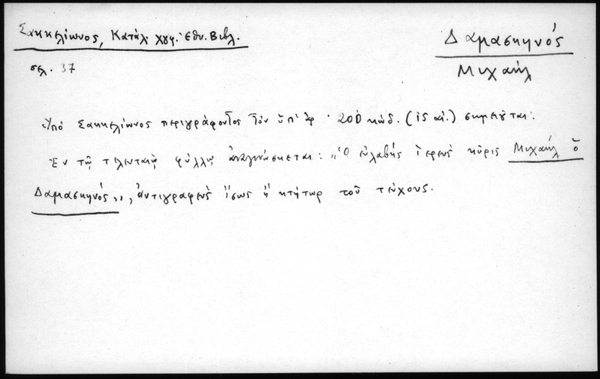 Σακκελίωνος, Κατάλ. χφγ. Εθν. Βιβλ.
Δαμασκηνός
Μιχαήλ
σελ. 37
Ὑπὸ Σακκελίωνος περιγράφοντος τὸν ὑπ' ἀρ. 200 κώδ. (ις αἰ.) σημειοῦται:
Ἐν τῷ τελευταίῳ φύλλῳ ἀναγινώσκεται: „Ὁ εὐλαβὴς ἱερεὺς κῦρις Μιχαὴλ ὁ
Δαμασκηνός„, ἀντιγραφεὺς ἴσως ἢ κτήτωρ τοῦ τεύχους.